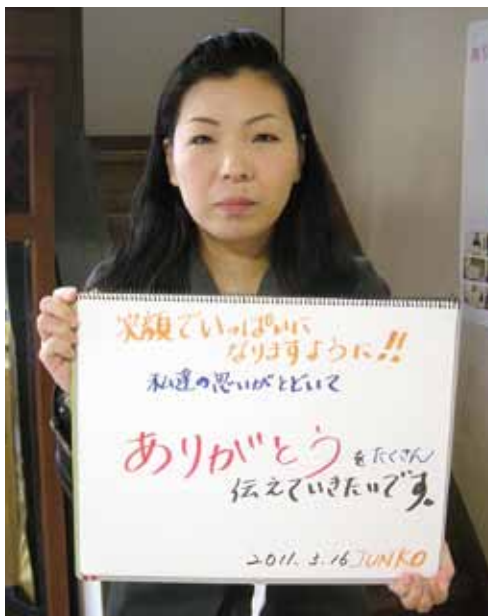 笑顔でいっぱいに
なりますように!!
私達の思いがとどいて
ありがとうをたくさん
伝えていきたいです。
2011. 5. 16 JUNKO